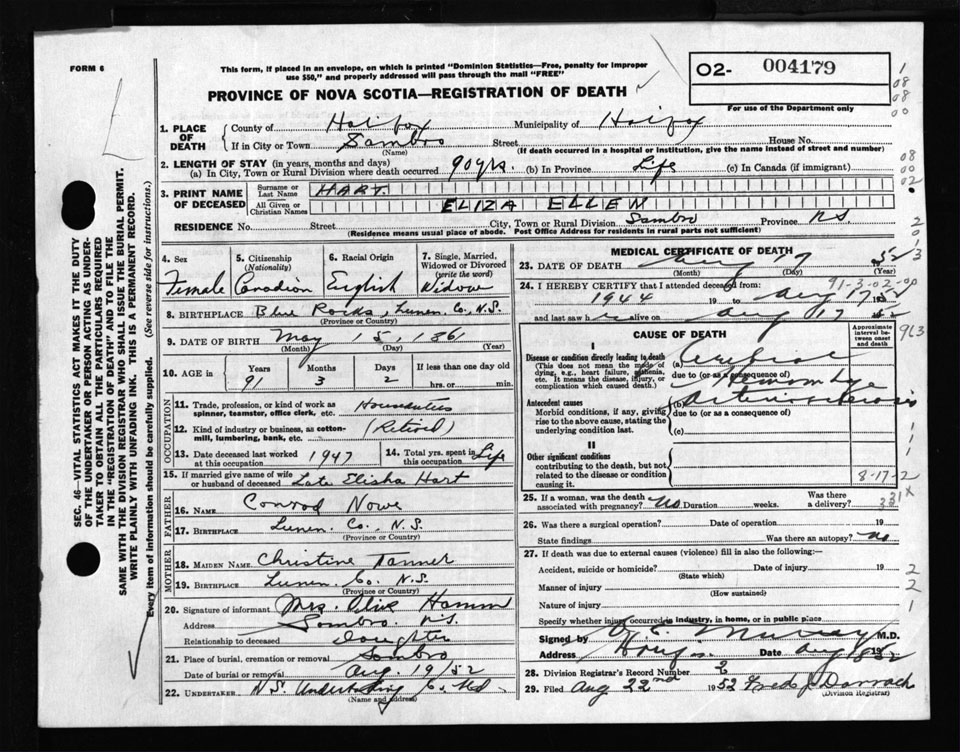 FORM 6
This form, if placed in an envelope, on which is printed "Dominion Statistics—Free, penalty for improper
use $50," and properly addressed will pass through the mail "FREE"
02- 004179
For use of the Department only
PROVINCE OF NOVA SCOTIA—REGISTRATION OF DEATH
1. PLACE OF DEATH
County of Halifax Municipality of Halifax
If in City or Town Sambro Street House No.
(Name) (If death occurred in a hospital or institution, give the name instead of street and number)
2. LENGTH OF STAY (in years, months and days)
(a) In City, Town or Rural Division where death occurred 90 yrs. (b) In Province Life (c) In Canada (if immigrant)
3. PRINT NAME OF DECEASED
Surname or Last Name HART
All Given or Christian Names ELIZA ELLEN
RESIDENCE No. Street City, Town or Rural Division Sambro Province NS
(Residence means usual place of abode. Post Office Address for residents in rural parts not sufficient)
4. Sex Female
5. Citizenship (Nationality) Canadian
6. Racial Origin English
7. Single, Married, Widowed or Divorced (write the word) Widow
8. BIRTHPLACE Blue Rocks, Lunen. Co., N.S.
(Province or Country)
9. DATE OF BIRTH May 15, 1861
(Month) (Day) (Year)
10. AGE in Years 91 Months 3 Days 2 If less than one day hrs. or min.
OCCUPATION
11. Trade, profession, or kind of work as spinner, teamster, office clerk, etc.
12. Kind of industry or business, as cotton-mill, lumbering, bank, etc. (Retired)
13. Date deceased last worked at this occupation 1947
14. Total yrs. spent in this occupation Life
15. If married give name of wife or husband of deceased Late Elisha Hart
FATHER
16. NAME Conrad Nowe
17. BIRTHPLACE Lunen. Co., N.S.
(Province or Country)
MOTHER
18. MAIDEN NAME Christine Tanner
19. BIRTHPLACE Lunen. Co. N.S.
(Province or Country)
20. Signature of informant Mrs. Olive Hamm
Address Sambro. NS.
Relationship to deceased daughter
21. Place of burial, cremation or removal Sambro
Date of burial or removal Aug. 19/52
22. UNDERTAKER N.S. Undertaking Co. Ltd
(Name and address)
MEDICAL CERTIFICATE OF DEATH
23. DATE OF DEATH Aug 17 52
(Month) (Day) (Year)
24. I HEREBY CERTIFY that I attended deceased from:
1944 19 to Aug 17 1952
and last saw h alive on Aug 17 1952
91-3-02-00
CAUSE OF DEATH
Approximate interval between onset and death
I
Disease or condition directly leading to death
(This does not mean the mode of dying, e.g., heart failure, asthenia, etc. It means the disease, injury, or complication which caused death.)
(a) Cerebral
due to (or as a consequence of) Hemorrhage
Antecedent causes
Morbid conditions, if any, giving rise to the above cause, stating the underlying condition last.
(b) Arteriosclerosis
due to (or as a consequence of)
(c)
II
Other significant conditions
contributing to the death, but not related to the disease or condition causing it.
8-17-2
25. If a woman, was the death associated with pregnancy? No Duration weeks. Was there a delivery?
331X
26. Was there a surgical operation? Date of operation 19
State findings Was there an autopsy? No
27. If death was due to external causes (violence) fill in also the following:—
Accident, suicide or homicide? Date of injury 19
(State which)
Manner of injury
(How sustained)
Nature of injury
Specify whether injury occurred in industry, in home, or in public place
Signed by Murray M.D.
Address Date Aug 18 1952
28. Division Registrar's Record Number 2
29. Filed Aug 22nd 1952 Fred J Darrach
(Division Registrar)
SEC. 46—VITAL STATISTICS ACT MAKES IT THE DUTY
OF THE UNDERTAKER OR PERSON ACTING AS UNDER-
TAKER TO OBTAIN ALL THE PARTICULARS REQUIRED
IN THE "REGISTRATION OF DEATH" AND TO FILE THE
SAME WITH THE DIVISION REGISTRAR WHO SHALL ISSUE THE BURIAL PERMIT.
WRITE PLAINLY WITH UNFADING INK. THIS IS A PERMANENT RECORD.
Every item of information should be carefully supplied. (See reverse side for instructions.)